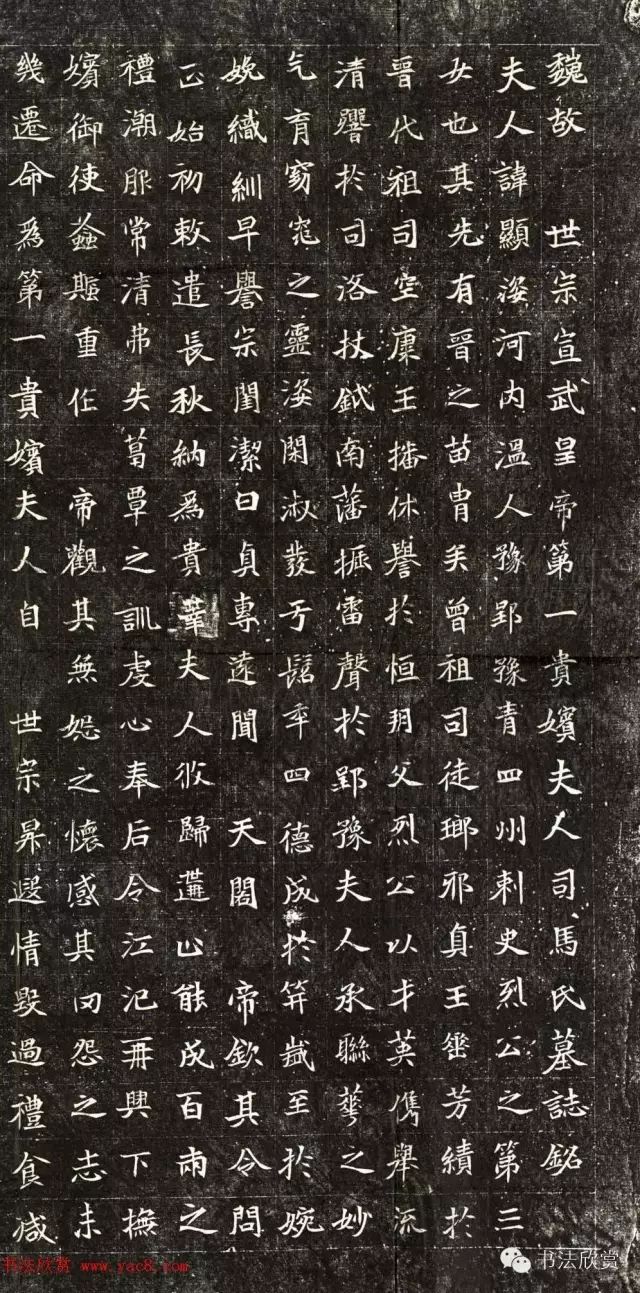 魏故　世宗宣武皇帝第一貴嬪夫人司馬氏墓誌銘
夫人諱顯姿河內溫人豫郢豫青四州刺史烈公之第三
女也其先有晉之苗胄矣曾祖司徒瑯邪貞王垂芳績於
晉代祖司空康王播休譽於恒朔父烈公以才英儁舉流
清響於司洛杖鉞南藩振雷聲於郢豫夫人承聯華之妙
气育窈窕之靈姿閑淑發于髫年四德成於笄歲至於婉
娩織紃早譽宗閨潔白貞專遠聞　天閣　帝欽其令問
正始初敕遣長秋納為貴華夫人攸歸遘止能成百兩之
禮澣服常清弗失葛覃之訓虔心奉后令江汜再興下撫
嬪御使螽斯重作　帝觀其無妬之懷感其罔怨之志未
幾遷命為第一貴嬪夫人自　世宗昇遐情毀過禮食減
书法欣赏 www.yac8.com
书法欣赏